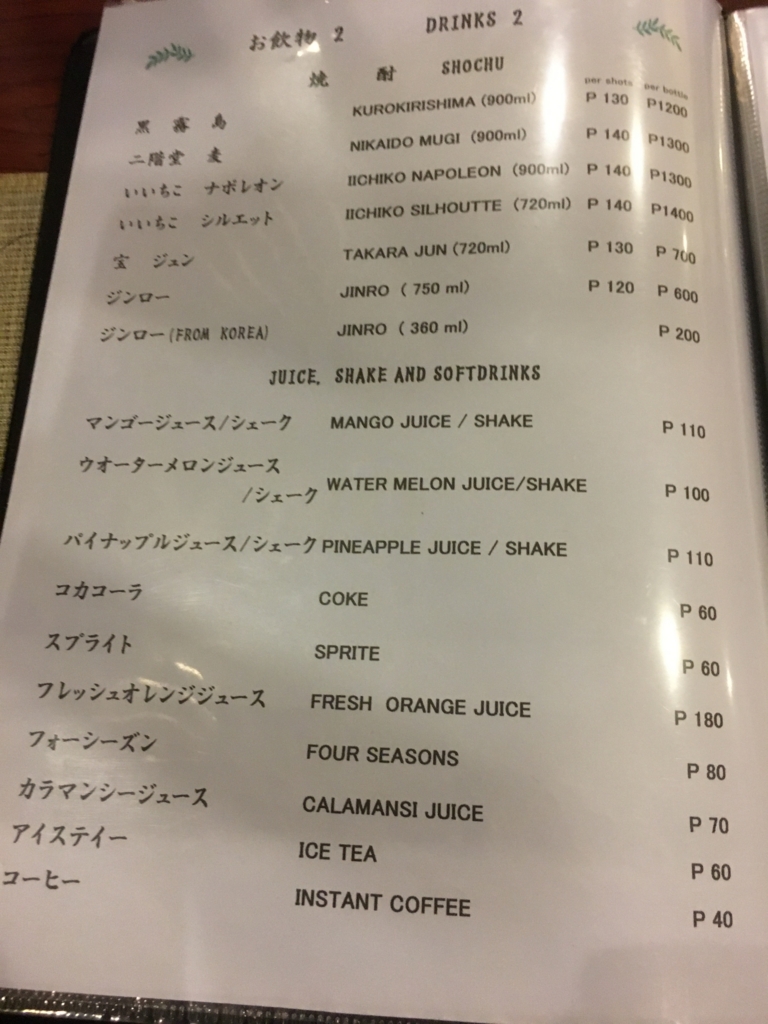 お飲物 2 DRINKS 2
焼 酎 SHOCHU
per shots per bottle
黒 霧 島 KUROKIRISHIMA (900ml) P 130 P1200
二階堂 麦 NIKAIDO MUGI (900ml) P 140 P1300
いいちこ ナポレオン IICHIKO NAPOLEON (900ml) P 140 P1300
いいちこ シルエット IICHIKO SILHOUTTE (720ml) P 140 P1400
宝 ジュン TAKARA JUN (720ml) P 130 P 700
ジンロー JINRO ( 750 ml) P 120 P 600
ジンロー(FROM KOREA) JINRO ( 360 ml) P 200
JUICE, SHAKE AND SOFTDRINKS
マンゴージュース/シェーク MANGO JUICE / SHAKE P 110
ウオーターメロンジュース
/シェーク WATER MELON JUICE/SHAKE P 100
パイナップルジュース/シェーク PINEAPPLE JUICE / SHAKE P 110
コカコーラ COKE P 60
スプライト SPRITE P 60
フレッシュオレンジジュース FRESH ORANGE JUICE P 180
フォーシーズン FOUR SEASONS P 80
カラマンシージュース CALAMANSI JUICE P 70
アイステイー ICE TEA P 60
コーヒー INSTANT COFFEE P 40